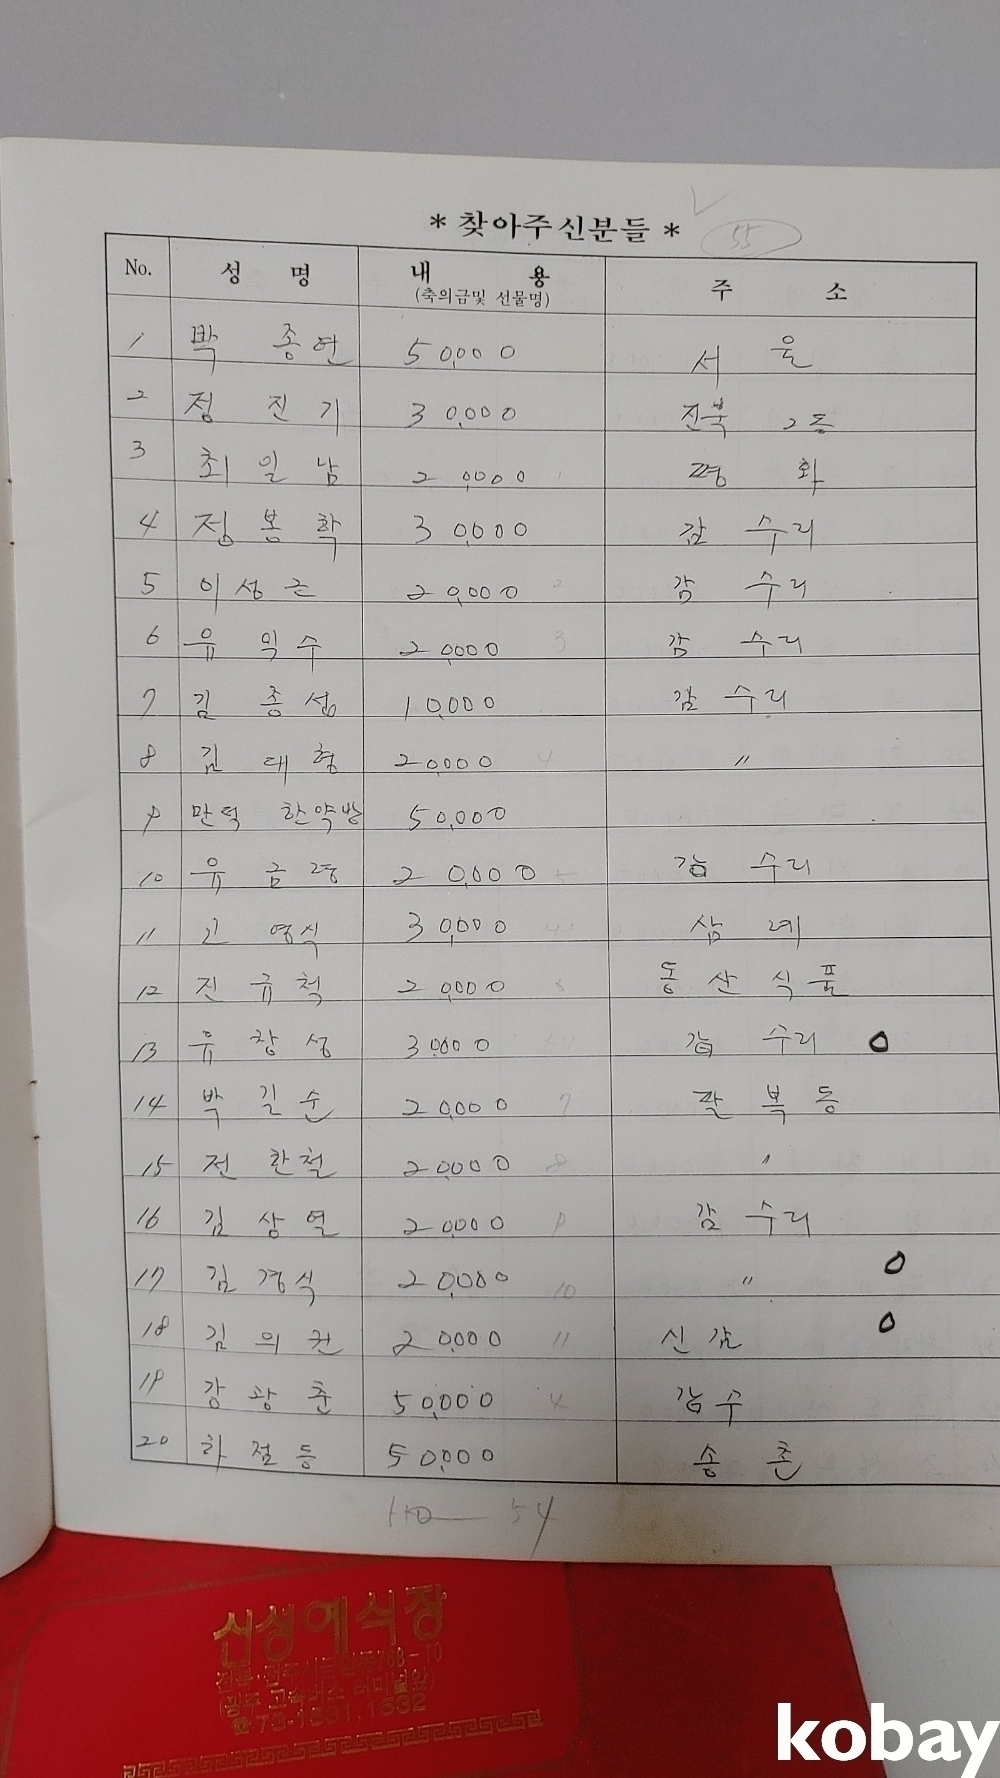 * 찾아주신분들 *
55
No. 성 명 내 용 주 소
(축의금및 선물명)
1 박 종연 50,000 서 울
2 정 진 기 30,000 진북 2동
3 최 일 남 20,000 평 화
4 정 봉 학 30,000 감 수리
5 이 성 근 20,000 2 감 수리
6 유 익 수 20,000 3 감 수리
7 김 종 섭 10,000 감 수리
8 김 대 형 20,000 4 〃
9 만덕 한약방 50,000
10 유 금 20,000 5 감 수리
11 고 영식 30,000 삼 례
12 진 규 척 20,000 동 산 식 품
13 유 창 성 30,000 감 수리 0
14 박 길 순 20,000 7 팔 복 동
15 전 환 철 20,000 8 〃
16 김 상 열 20,000 9 감 수리
17 김 경 식 20,000 10 〃 0
18 김 의 권 20,000 11 신 감 0
19 강 광 춘 50,000 4 감 수
20 하 점 동 50,000 송 촌
54
신생예식장
(광주 고속버스 터미널앞)
☎ 73-1531, 1532
kobay